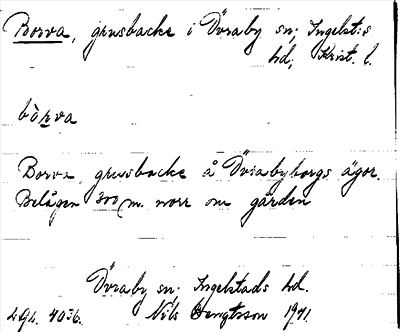 Borva, grusbacke i Övraby sn; Ingelst:s
hd; Krist. l.
bòrva
Borva, grusbacke å Övrabyborgs ägor.
Belägen 300 m. norr om gården
Övraby sn. Ingelstads hd.
Nils Bengtsson 1941.